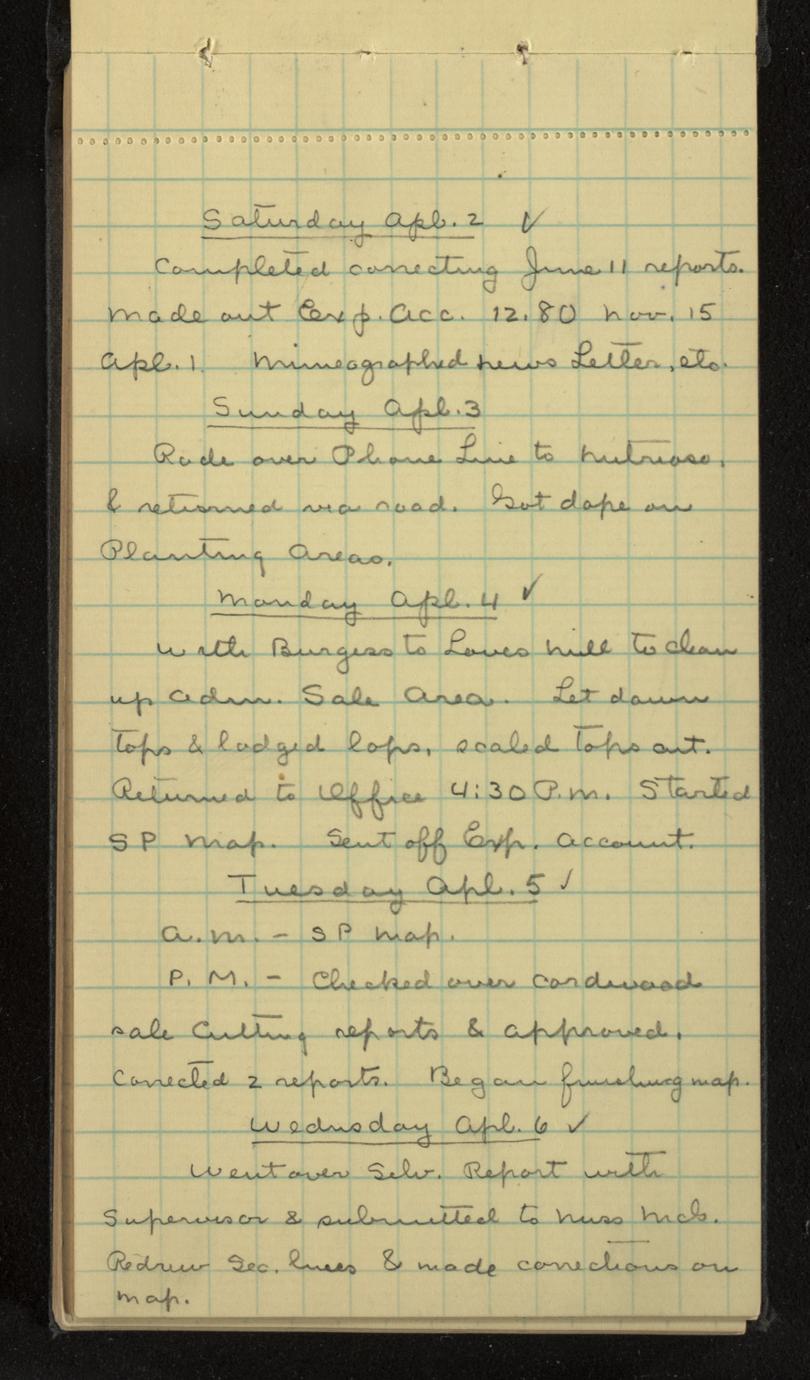 Saturday Apl. 2 ✓
Completed correcting June 11 reports.
Made out Exp. Acc. 12.80 Nov. 15
Apl. 1. Mimeographed News Letter, etc.
Sunday Apl. 3
Rode over Phone Line to Nutrioso,
& returned via road. Got dope on
Planting Areas.
Monday Apl. 4 ✓
With Burgess to Loves Mill to clean
up Adm. Sale Area. Let down
tops & lodged lops, scaled tops out.
Returned to Office 4:30 P.m. Started
SP Map. Sent off Exp. Account.
Tuesday Apl. 5 ✓
a.m. - SP map.
P.M. - Checked over cordwood
sale Cutting reports & approved.
Corrected 2 reports. Began finishing map.
Wednsday Apl. 6 ✓
Went over Silv. Report with
Supervisor & submitted to Miss
Redrew Sec. lines & made corrections on
map.